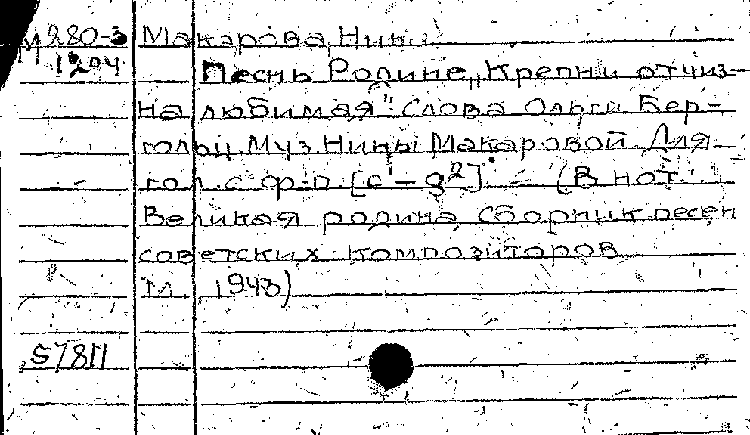 М280-3 Макарова, Нина
1294 Песнь Родине „Крепни отчиз-
на любимая" Слова Ольги Бер-
гольц. Муз. Нины Макаровой Для
гол. с ф-п. [c¹ – g²]. – (В нот.:
Великая родина. Сборник песен
советских композиторов
М. 1948)